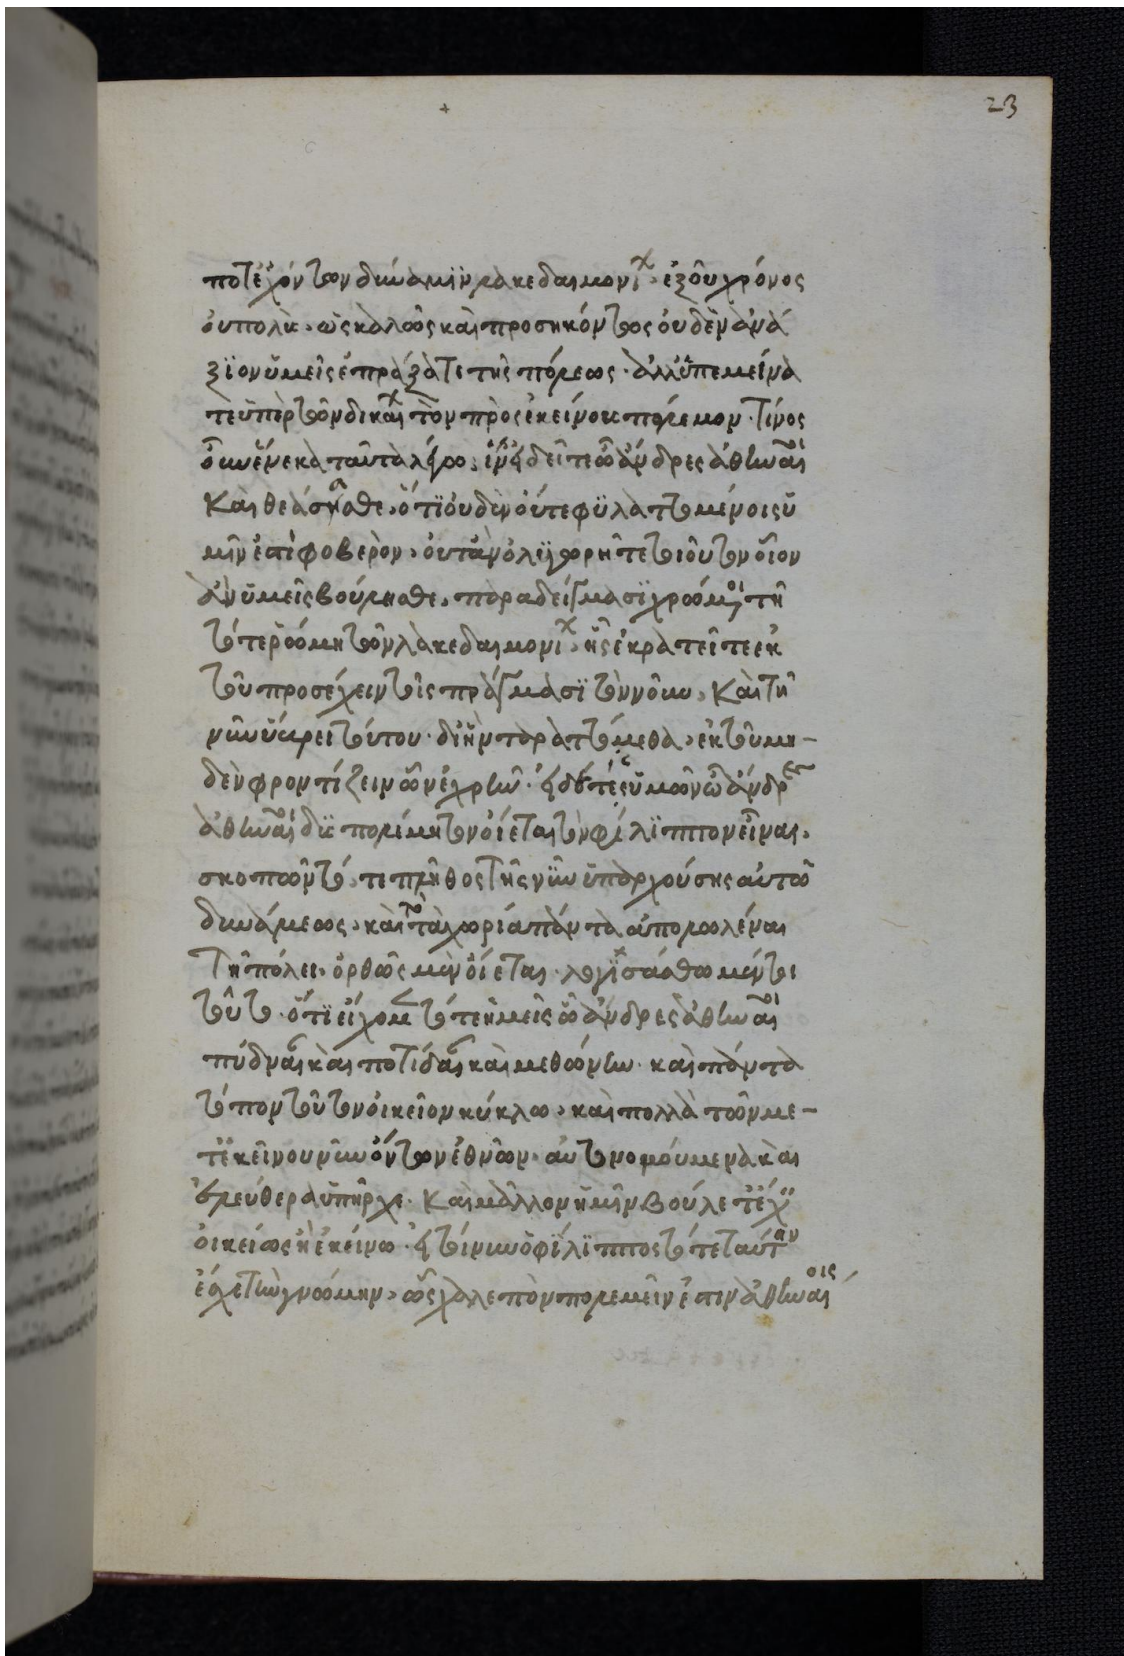 23
ποτ' ἐχόντων δύναμιν λακεδαιμονί(ων), ἐξ οὗ χρόνος
οὐ πολὺς, ὡς καλῶς καὶ προσηκόντως οὐδὲν ἀνά
ξιον ὑμεῖς ἐπράξατε τῆς πόλεως. ἀλλ' ὑπεμείνα
τε ὑπὲρ τῶν δικαί(ων) τὸν πρὸς ἐκείνους πόλεμον. τίνος
οὖν ἕνεκα ταῦτα λέγω, ἵν' εἰδεῖτε ὦ ἄνδρες ἀθηναῖοι
καὶ θεάσησθε, ὅτι οὐδὲν οὔτε φυλαττομένοις ὑ
μῖν ἐστὶ φοβερὸν, οὔτ' ἂν ὀλιγωρῆτε τοιοῦτον οἷον
ἂν ὑμεῖς βούλησθε, παραδείγμασι χρώμενοι τῆ
τότε ῥώμη τῶν λακεδαιμονί(ων), ἧς ἐκρατεῖτε ἐκ
τοῦ προσέχειν τοῖς πράγμασι τὸν νοῦν, καὶ τῆ
νῦν ὕβρει τούτου. δι' ἣν ταραττόμεθα, ἐκ τοῦ μη-
δὲν φροντίζειν ὧν ἐχρῆν. εἰ δέ τις ὑμῶν ὦ ἄνδρες
ἀθηναῖοι δυσπολέμητον οἴεται τὸν φίλιππον εἶναι,
σκοπῶν τό, τε πλῆθος τῆς νῦν ὑπαρχούσης αὐτῶ
δυνάμεως, καὶ τὸ τὰ χωρία πάντα ἀπολωλέναι
τῆ πόλει, ὀρθῶς μὲν οἴεται. λογισάσθω μέντοι
τοῦτο. ὅτι εἴχομεν τότε ἡμεῖς ὦ ἄνδρες ἀθηναῖοι
πύδναν καὶ ποτίδαιαν καὶ μεθώνην. καὶ πάντα
τόπον τοῦτον οἰκεῖον κύκλω, καὶ πολλὰ τῶν με-
τ' ἐκείνου νῦν ὄντων ἐθνῶν. αὐτονομούμενα καὶ
ἐλεύθερα ὑπῆρχε. καὶ μᾶλλον ἡμῖν βούλετ' ἔχειν
οἰκείως ἢ ἐκείνω. εἰ τοίνυν ὁ φίλιππος τότε ταύτην
ἔσχε τὴν γνώμην, ὡς χαλεπὸν πολεμεῖν ἐστὶν ἀθηναίοις